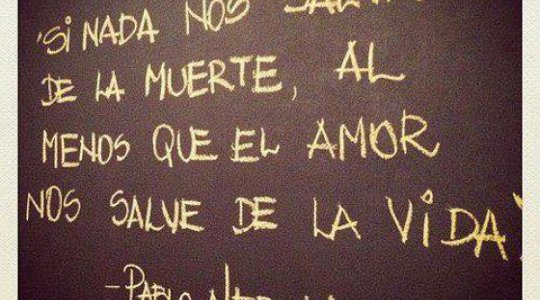 'Si NADA NOS SALVA
DE LA MUERTE, AL
MENOS QUE EL AMOR
NOS SALVE DE LA ViDA'
- PABLO